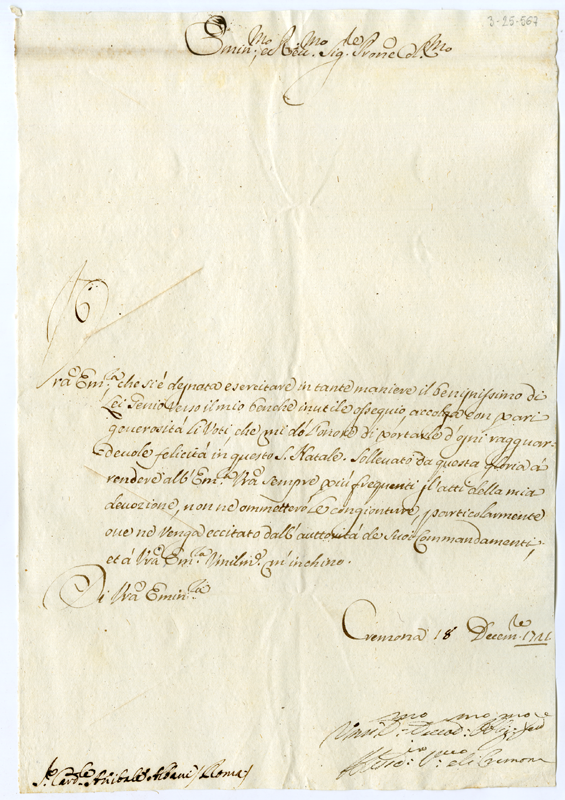 3-25-567
Emin.mo e Rev.mo Sig.re Prone Col.mo
Vrã Em.za che si è degnata esercitare in tante maniere il benignissimo di
Lei Genio verso il mio benche inutile ossequio, accolga con pari
generosità li Voti, che mi dò l'onore di portarle d'ogni ragguar-
deuole felicità in questo S. Natale. Solleuato da questa gloria à
rendere all'Em.za Vrã sempre più frequenti gl'atti della mia
deuozione, non ne ommetterò le congionture, particolarmente
oue ne venga eccitato dall'auttorità de Suoi Commandamenti,
et à Vrã Em.za Vmilm.e m'inchino.
Di Vrã Emin.za
Cremona 18 Decem.re 1721
Vmil.mo
di Cremona
S.r Card.le Anibale Albani (Roma)